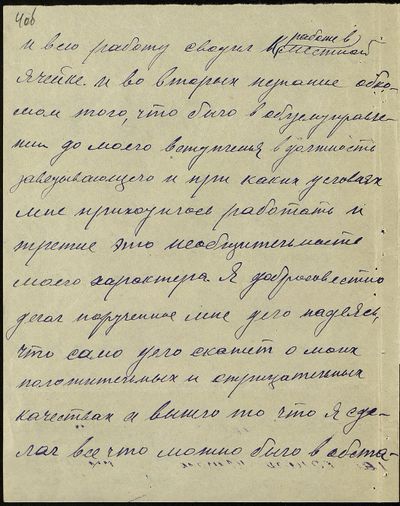 406
работе в
и всю работу сводил к местной
ячейке. и во вторых незнание обко-
мом того, что было в облуправле-
нии до моего вступления в должность
заведывающего и при каких условиях
мне приходилось работать и
третие это необщительность
моего характера. Я добросовестно
делал порученное мне дело надеясь,
что само дело скажет о моих
положительных и отрицательных
качествах а вышло то что я сде-
лал все что можно было в обста-